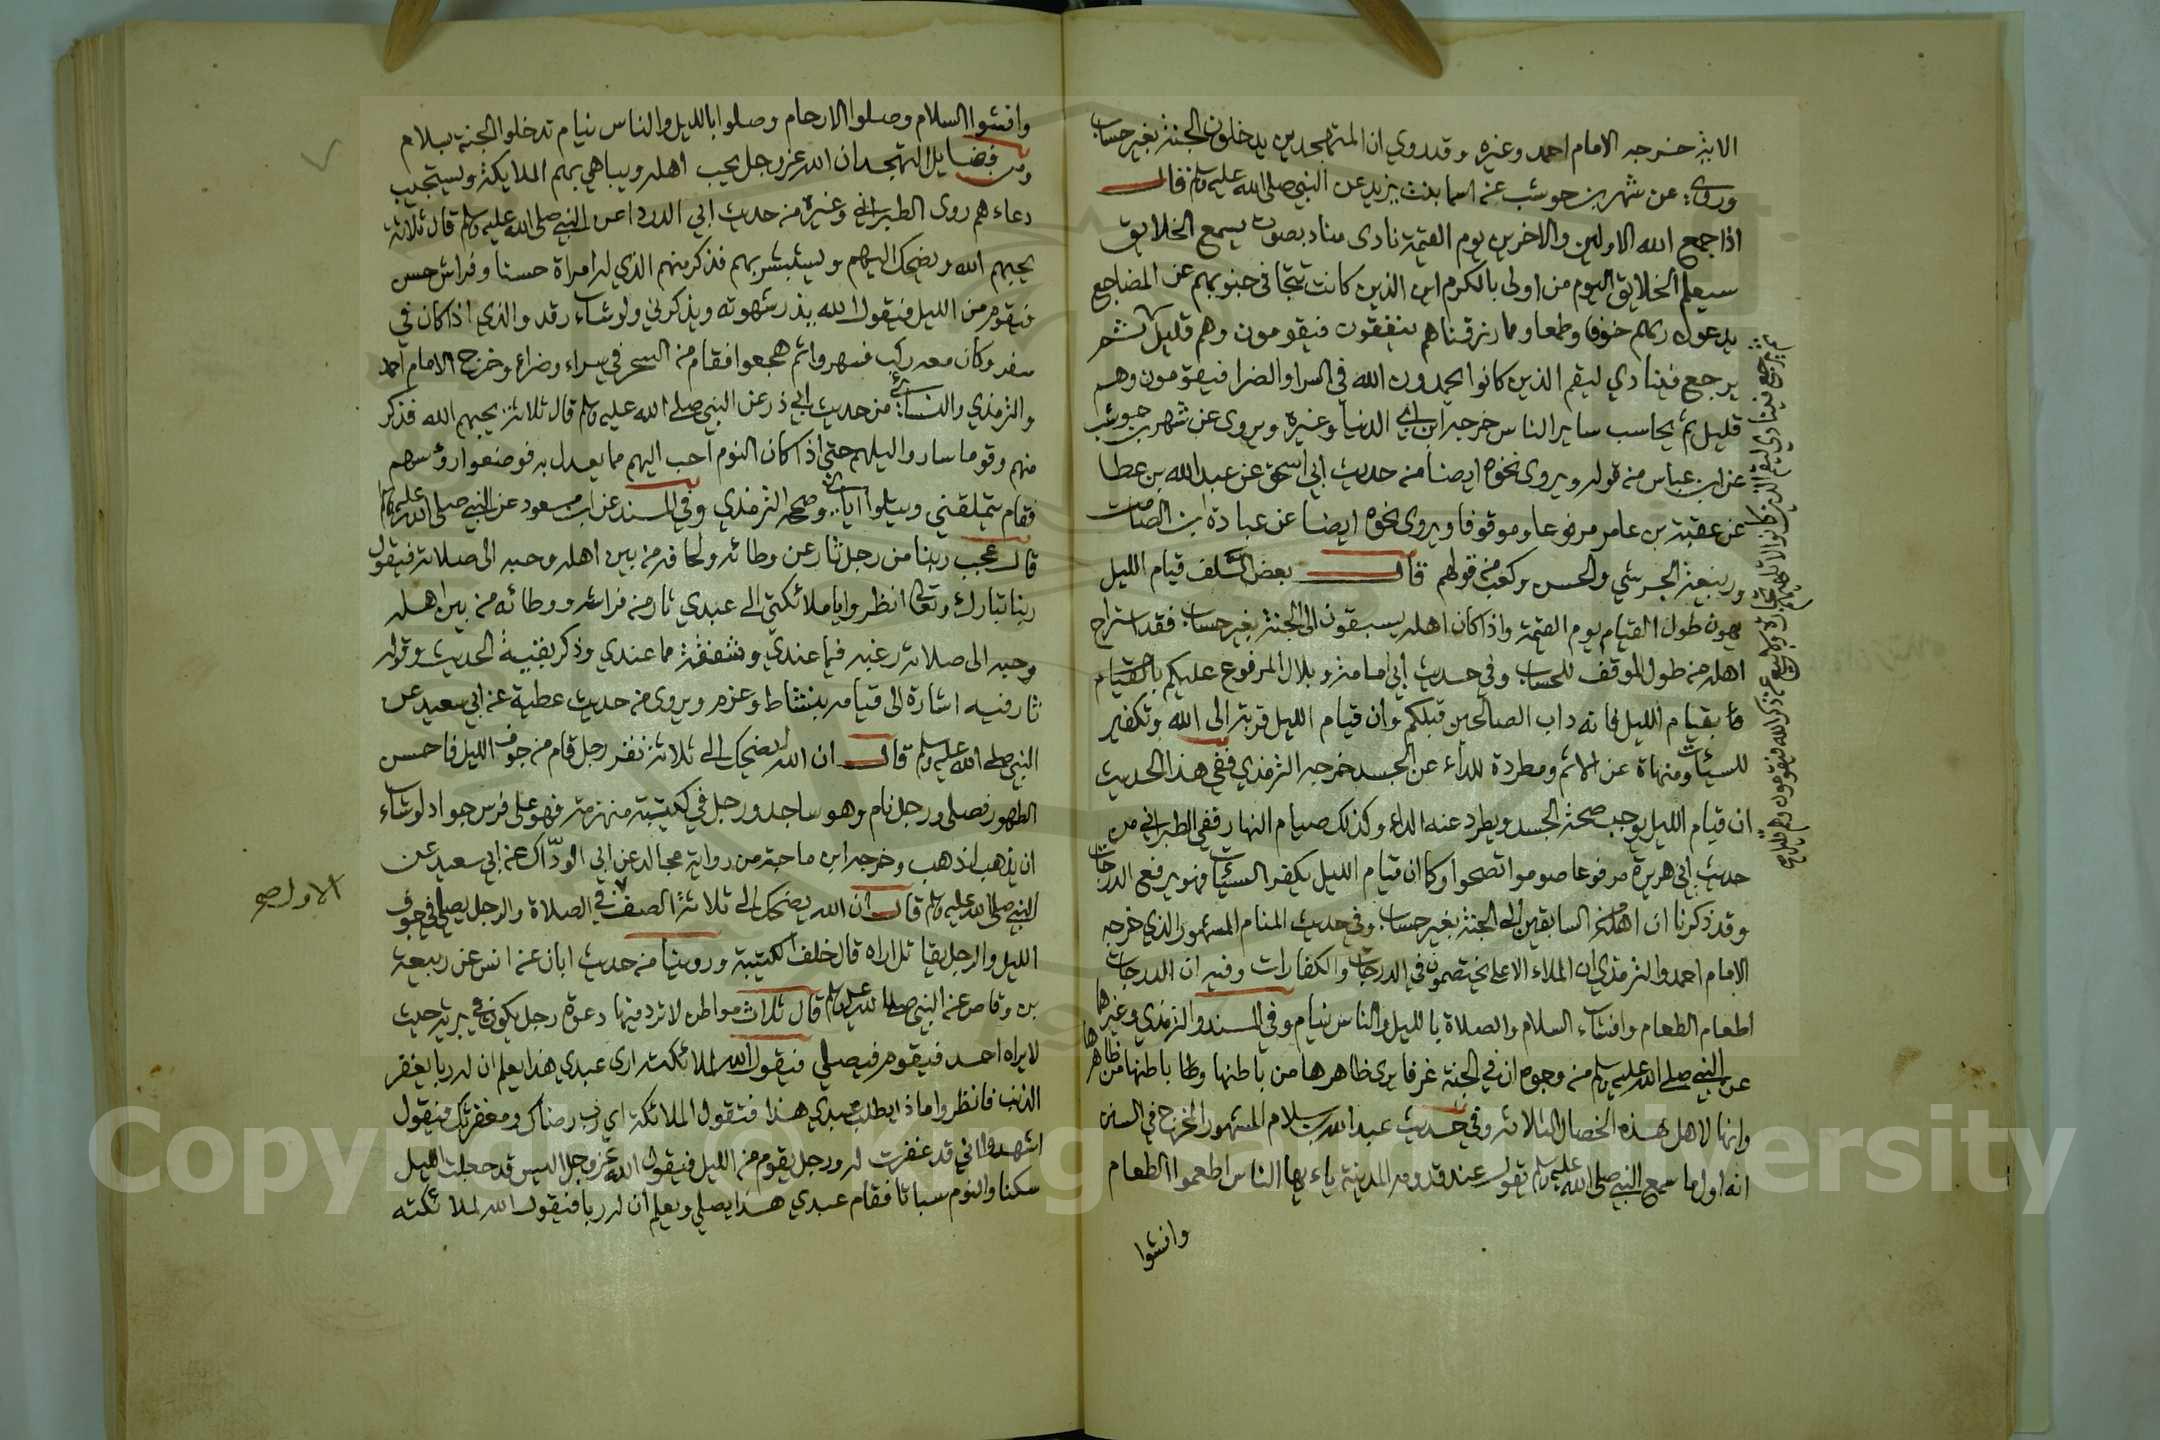 الاية خرجه الامام احمد وغيره وقد روي ان المتهجدين يدخلون الجنة بغير حساب
وروي عن شهر بن حوشب عن اسما بنت يزيد عن النبي صلى الله عليه وسلم قال
اذا جمع الله الاولين والاخرين يوم القيمة نادى مناد بصوت يسمع الخلايق
سيعلم الخلايق اليوم من اولى بالكرم اين الذين كانت تتجافى جنوبهم عن المضاجع
يدعون ربهم خوفا وطمعا ومما رزقناهم ينفقون فيقومون وهم قليل ثم
يرجع فينادي ليقم الذين كانوا يحمدون الله في السرا والضرا فيقومون وهم
قليل ثم يحاسب ساير الناس خرجه ابن ابي الدنيا وغيره ويروى عن شهر بن حوشب
عن ابن عباس من قوله ويروى نحوه ايضا من حديث ابي اسحق عن عبد الله بن عطا
عن عقبة بن عامر مرفوعا وموقوفا ويروى نحوه ايضا عن عبادة ابن الصامت
وربيعة الجرشي والحسن وكعب من قولهم قال بعض السلف قيام الليل
يهون طول القيام يوم القيمة واذا كان اهله يسبقون الى الجنة بغير حساب فقد استراح
اهله من طول الموقف للحساب وفي حديث ابي امامة وبلال المرفوع عليكم بالقيام
قا بقيام الليل فانه داب الصالحين قبلكم وان قيام الليل قربة الى الله وتكفير
للسيئات ومنهاة عن الاثم ومطردة للداء عن الجسد خرجه الترمذي ففي هذا الحديث
ان قيام الليل يوجب صحة الجسد ويطرد عنه الداء وكذلك صيام النهار ففي الطبراني من
حديث ابي هريرة مرفوعا صوموا تصحوا وكما ان قيام الليل يكفر السيئات فهو يرفع الدرجات
وقد ذكرنا ان اهله من السابقين الى الجنة بغير حساب وفي حديث المنام المشهور الذي خرجه
الامام احمد والترمذي ان الملاء الاعلى يختصمون في الدرجات والكفارات وفيه ان الدرجات
اطعام الطعام وافشاء السلام والصلاة بالليل والناس نيام وفي المسند والترمذي وغيرها
عن النبي صلى الله عليه وسلم من وجوه ان في الجنة غرفا يرى ظاهرها من باطنها وباطنها من ظاهرها
وانها لاهل هذه الخصال الثلاثة وفي حديث عبد الله بن سلام المشهور المخرج في السنن
انه اول ما سمع النبي صلى الله عليه وسلم يقول عند قدومه المدينة ياءيها الناس اطعموا الطعام
وافشوا
ثم يرجع فينادي ليقم الذين كانوا لا تلهيهم تجارة ولا بيع عن ذكر الله فيقومون وهم قليل
وافشوا السلام وصلوا الارحام وصلوا بالليل والناس نيام تدخلوا الجنة بسلام
ومن فضايل التهجد ان الله عز وجل يحب اهله ويباهي بهم الملايكة ويستجيب
دعاءهم روى الطبراني وغيره من حديث ابي الدرداء عن النبي صلى الله عليه وسلم قال ثلاثة
يحبهم الله ويضحك اليهم ويستبشر بهم فذكر منهم الذي له امراة حسنا وفراش حسن
فيقوم من الليل فيقول الله يذر شهوته ويذكرني ولو شاء رقد والذي اذا كان في
سفر وكان معه ركب فسهروا ثم هجعوا فقام من السحر في سراء وضراء وخرج الامام احمد
والترمذي والنسائي من حديث ابي ذر عن النبي صلى الله عليه وسلم قال ثلاثة يحبهم الله فذكر
منهم وقوما ساروا ليلهم حتى اذا كان النوم احب اليهم مما يعدل به فوضعوا رؤسهم
فقام يتملقني ويتلوا اياتي وصححه الترمذي وفي المسند عن ابن مسعود عن النبي صلى الله عليه وسلم
قال عجب ربنا من رجل ثار عن وطائه ولحافه من بين اهله وحبه الى صلاته فيقول
ربنا تبارك وتعالى انظروا يا ملائكتي الى عبدي ثار من فراشه ووطائه من بين اهله
وحبه الى صلاته رغبه فيما عندي وشفقة مما عندي وذكر بقية الحديث وقوله
ثار فيه اشارة الى قيامه بنشاط وعزم ويروى من حديث عطية عن ابي سعيد عن
النبي صلى الله عليه وسلم قال ان الله ليضحك الى ثلاثة نفر رجل قام من جوف الليل فاحسن
الطهور فصلى ورجل نام وهو ساجد ورجل في كتيبة منهزمة فهو على فرس جواد لو شاء
ان يذهب لذهب وخرجه ابن ماجة من رواية مجالد عن ابي الودّاك عن ابي سعيد عن
النبي صلى الله عليه وسلم قال ان الله يضحك الى ثلاثة الصف في الصلاة والرجل يصلي في جوف
الليل والرجل يقاتل اراه قال خلف الكتيبة وروينا من حديث ابان عن انس عن ربيعة
بن وقاص عن النبي صلى الله عليه وسلم قال ثلاث مواطن لا ترد فيها دعوة رجل يكون في برية حيث
لا يراه احد فيقوم فيصلي فيقول الله لملائكته ارى عبدي هذا يعلم ان له ربا يغفر
الذنب فانظروا ماذا يطلب عبدي هذا فتقول الملائكة اي رب رضاك ومغفرتك فيقول
اشهدوا اني قد غفرت له ورجل يقوم من الليل فيقول الله عز وجل اليس قد جعلت الليل
سكنا والنوم سباتا فقام عبدي هذا يصلي ويعلم ان له ربا فيقول الله لملائكته
الاول صح
Copyright © King Saud University